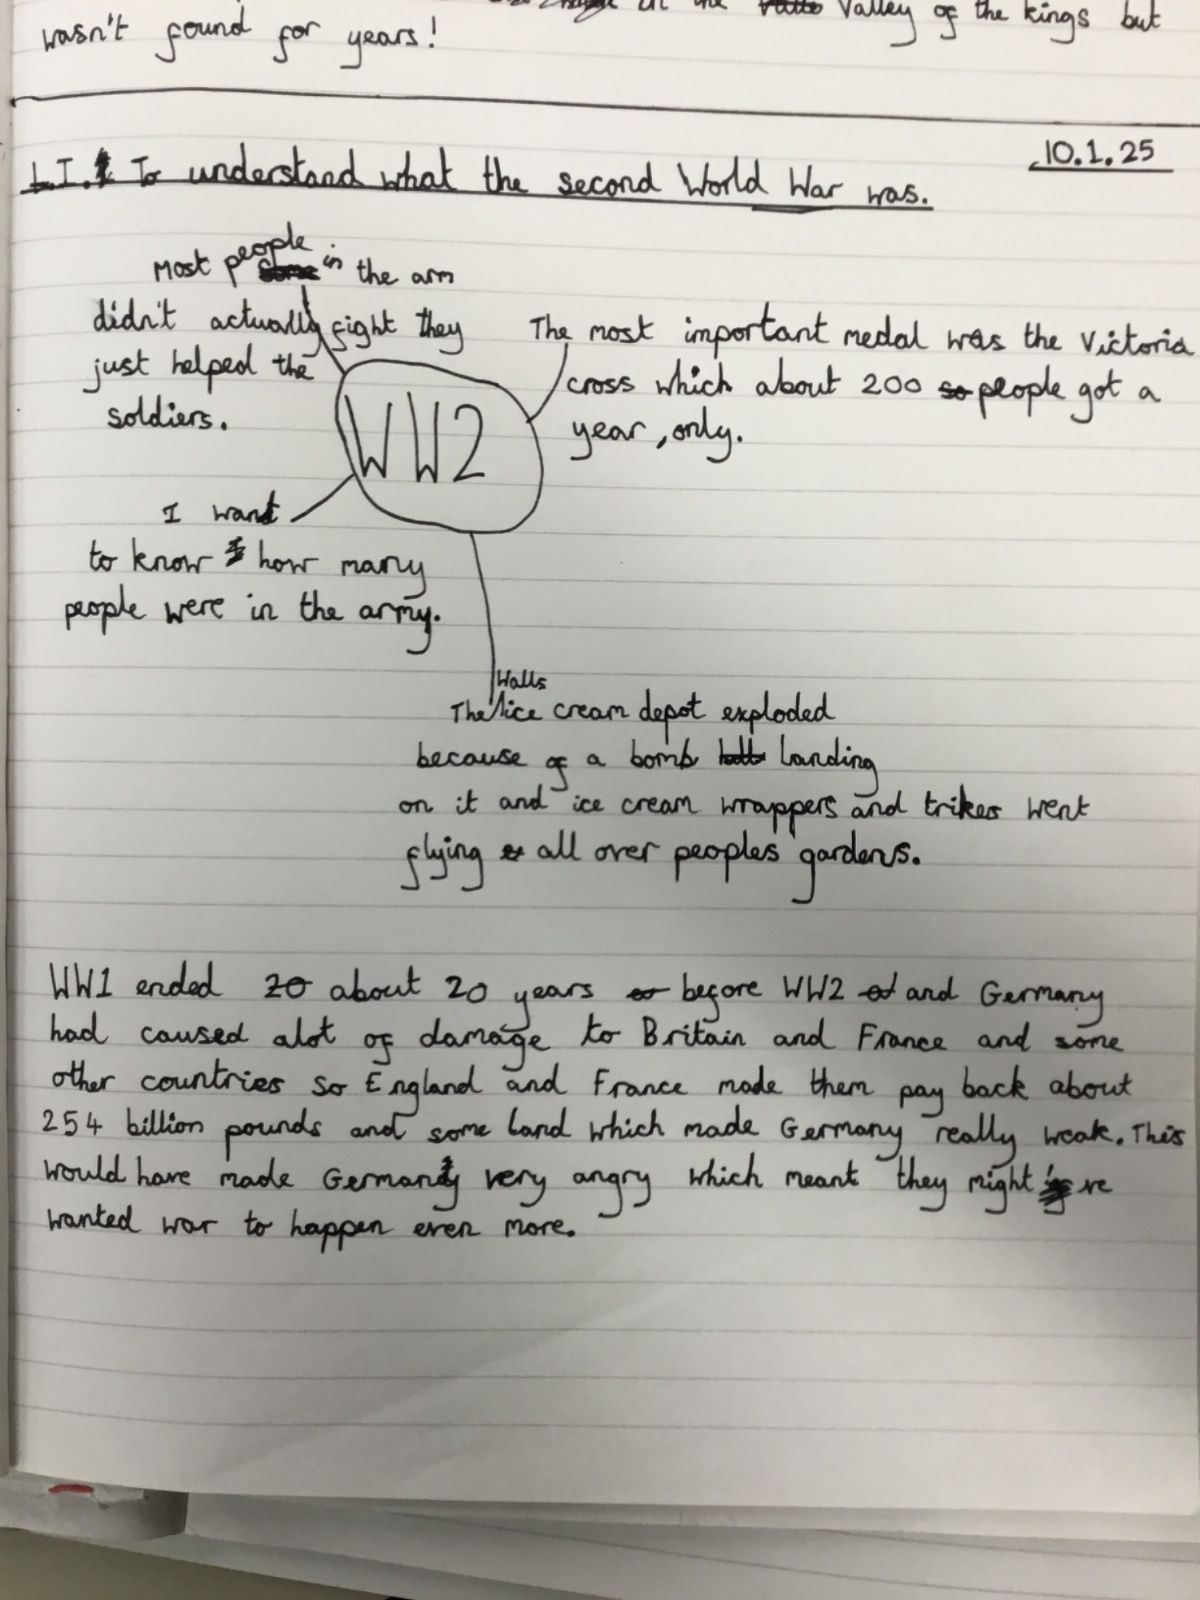 in the Valley of the kings but
wasn't found for years!
10.1.25
L.I. To understand what the second World War was.
Most people in the arm
didn't actually fight they
just helped the
soldiers.
The most important medal was the Victoria
cross which about 200 people got a
year, only.
WW2
I want
to know how many
people were in the army.
The Walls ice cream depot exploded
because of a bomb landing
on it and ice cream wrappers and trikes went
flying all over peoples gardens.
WW1 ended about 20 years before WW2 and Germany
had caused alot of damage to Britain and France and some
other countries so England and France made them pay back about
254 billion pounds and some land which made Germany really weak. This
would have made Germany very angry which meant they might've
wanted war to happen even more.